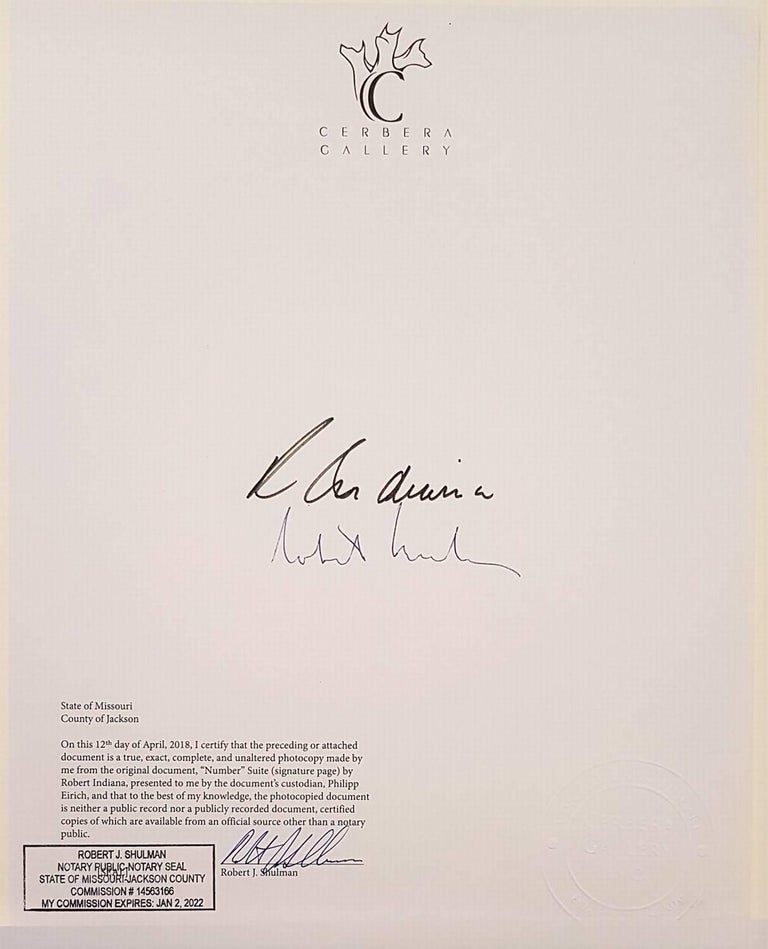 C
CERBERA
GALLERY
R Indiana
Robert
State of Missouri
County of Jackson
On this 12th day of April, 2018, I certify that the preceding or attached
document is a true, exact, complete, and unaltered photocopy made by
me from the original document, “Number” Suite (signature page) by
Robert Indiana, presented to me by the document’s custodian, Philipp
Eirich, and that to the best of my knowledge, the photocopied document
is neither a public record nor a publicly recorded document, certified
copies of which are available from an official source other than a notary
public.
ROBERT J. SHULMAN
NOTARY PUBLIC-NOTARY SEAL
STATE OF MISSOURI-JACKSON COUNTY
COMMISSION # 14563166
MY COMMISSION EXPIRES: JAN 2, 2022
Robert J. Shulman